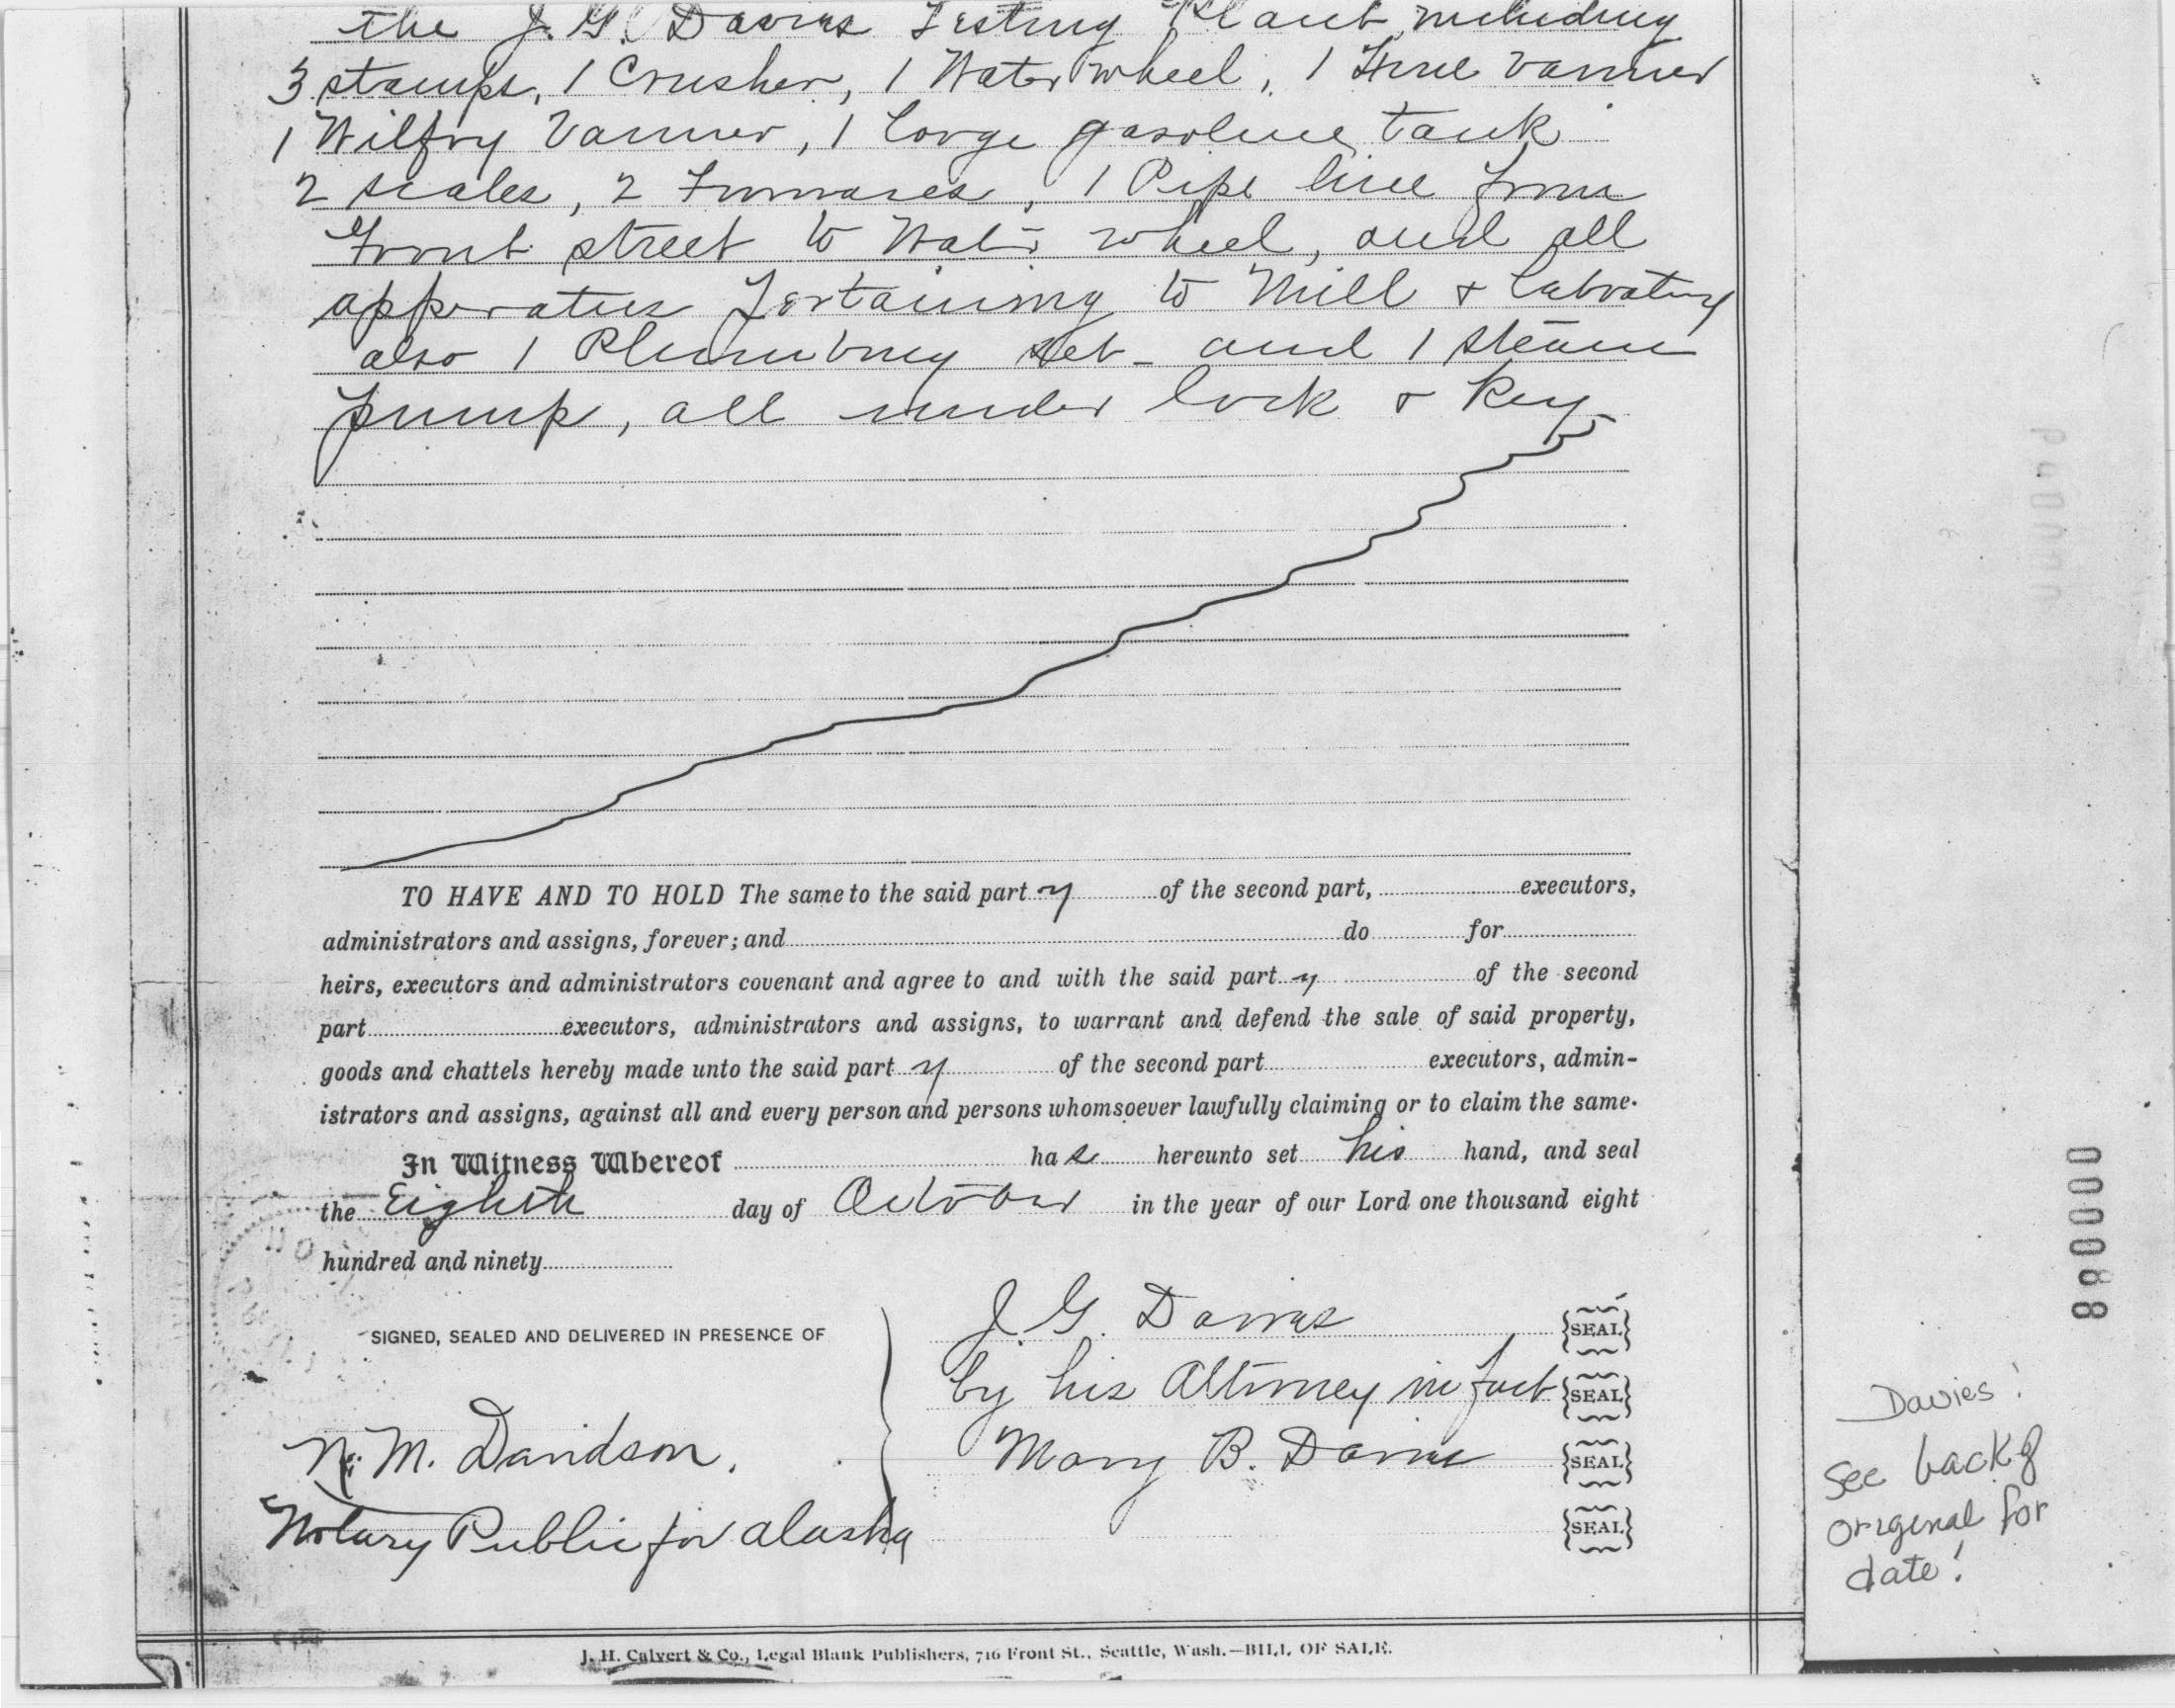 the J. G. Davies Testing Plant, including
3 stamps, 1 Crusher, 1 Water wheel, 1 Frue vanner
1 Wilfry Vanner, 1 large gasoline tank
2 scales, 2 Furnaces, 1 Pipe line from
Front street to Water wheel, and all
apparatus Pertaining to Mill & Labratory
also 1 Plumbing set - and 1 steam
pump, all under lock & key
TO HAVE AND TO HOLD The same to the said part y of the second part, executors,
administrators and assigns, forever; and do for
heirs, executors and administrators covenant and agree to and with the said part y of the second
part executors, administrators and assigns, to warrant and defend the sale of said property,
goods and chattels hereby made unto the said part y of the second part executors, admin-
istrators and assigns, against all and every person and persons whomsoever lawfully claiming or to claim the same.
In Witness Whereof ha s hereunto set his hand, and seal
the Eighth day of October in the year of our Lord one thousand eight
hundred and ninety
SIGNED, SEALED AND DELIVERED IN PRESENCE OF
J. G. Davies SEAL
by his Attorney in fact SEAL
N. M. Davidson. Mary B. Davies SEAL
Notary Public for Alaska SEAL
J. H. Calvert & Co., Legal Blank Publishers, 716 Front St., Seattle, Wash.—BILL OF SALE.
000088
Davies!
See back of
original for
date!